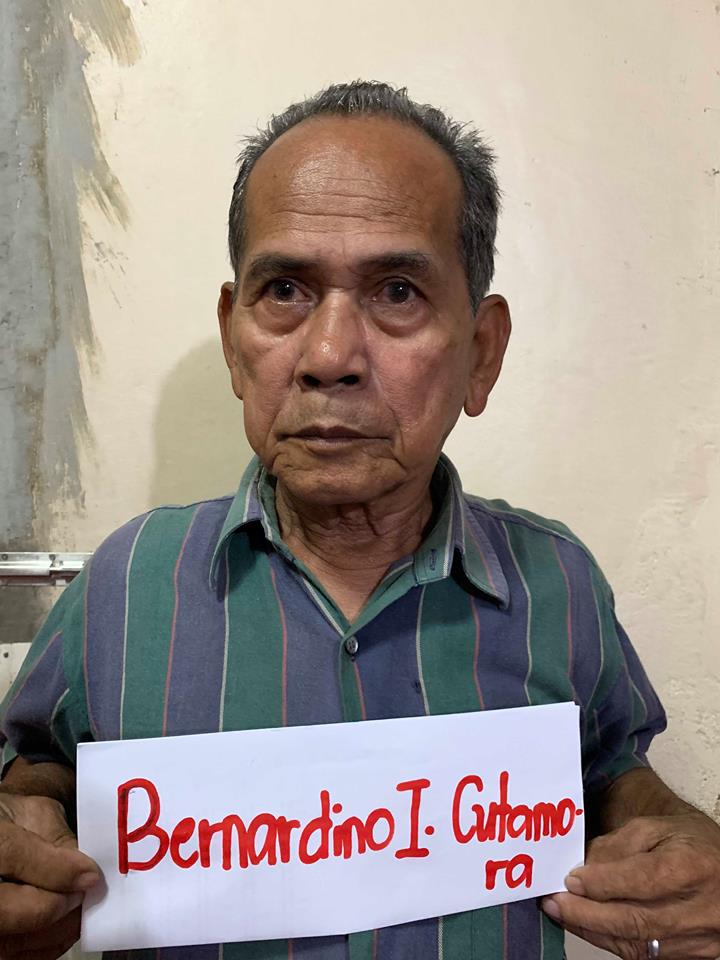 Bernardino I. Cutamo-
ra